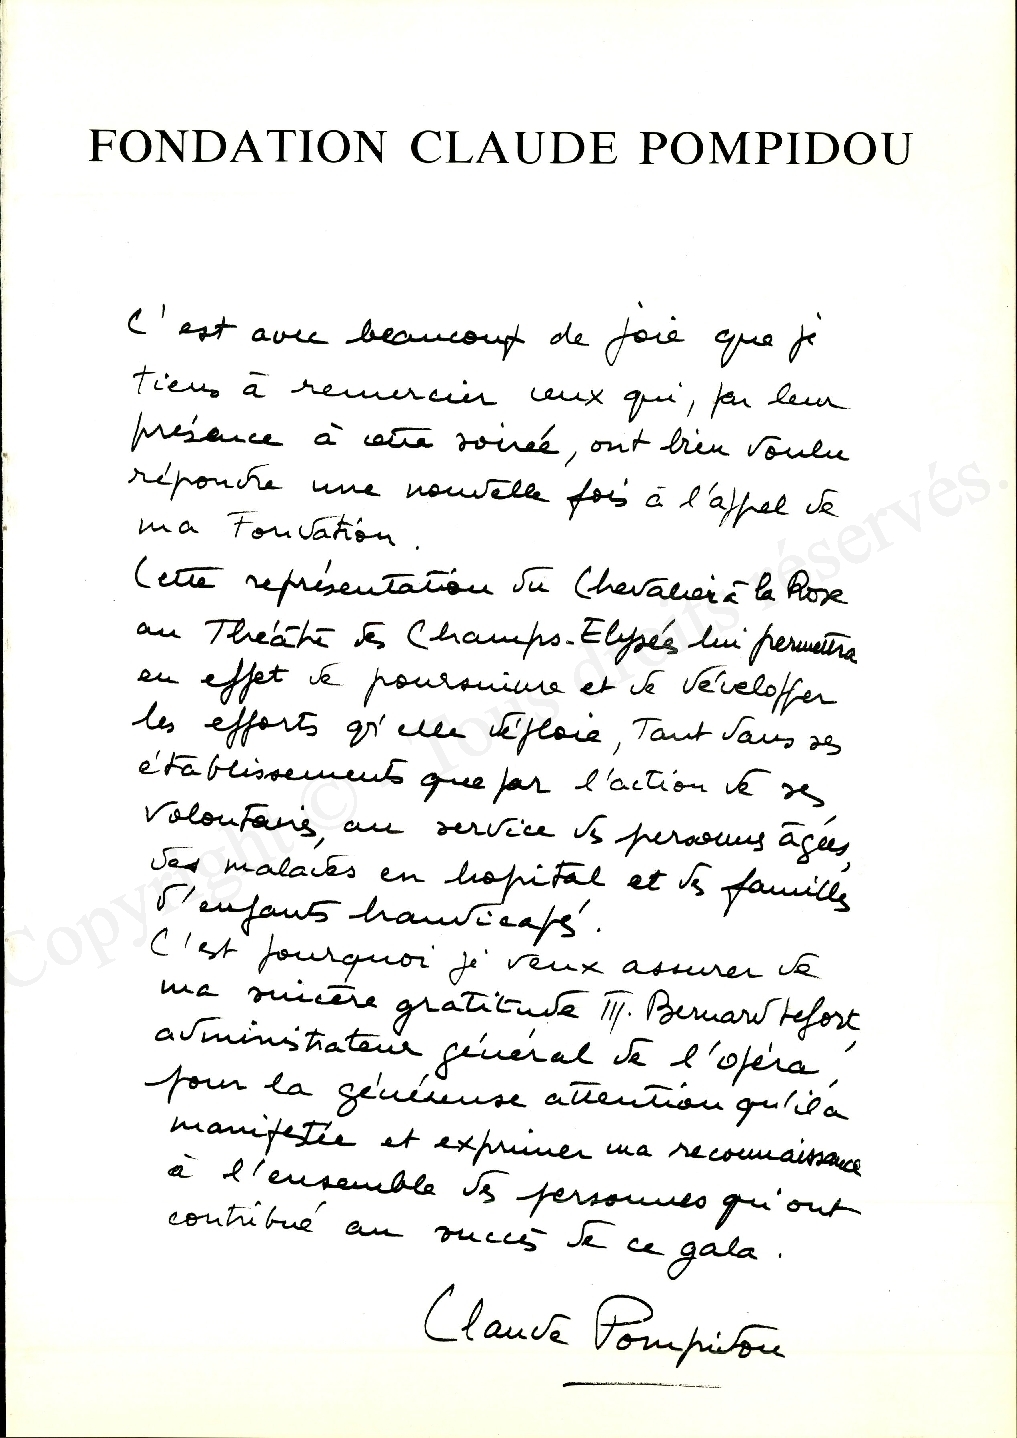 FONDATION CLAUDE POMPIDOU
C'est avec beaucoup de joie que je
tiens à remercier ceux qui, par leur
présence à cette soirée, ont bien voulu
répondre une nouvelle fois à l'appel de
ma Fondation.
Cette représentation du Chevalier à la Rose
au Théâtre des Champs-Elysées lui permettra
en effet de poursuivre et de développer
les efforts qu'elle déploie, tant dans ses
établissements que par l'action de ses
volontaires, au service des personnes âgées,
des malades en hopital et des familles
d'enfants handicapés.
C'est pourquoi je veux assurer de
ma sincère gratitude M. Bernard Lefort,
administrateur général de l'opéra,
pour la généreuse attention qu'il a
manifestée et exprimer ma reconnaissance
à l'ensemble des personnes qui ont
contribué au succès de ce gala.
Claude Pompidou
Copyright © Tous droits réservés.